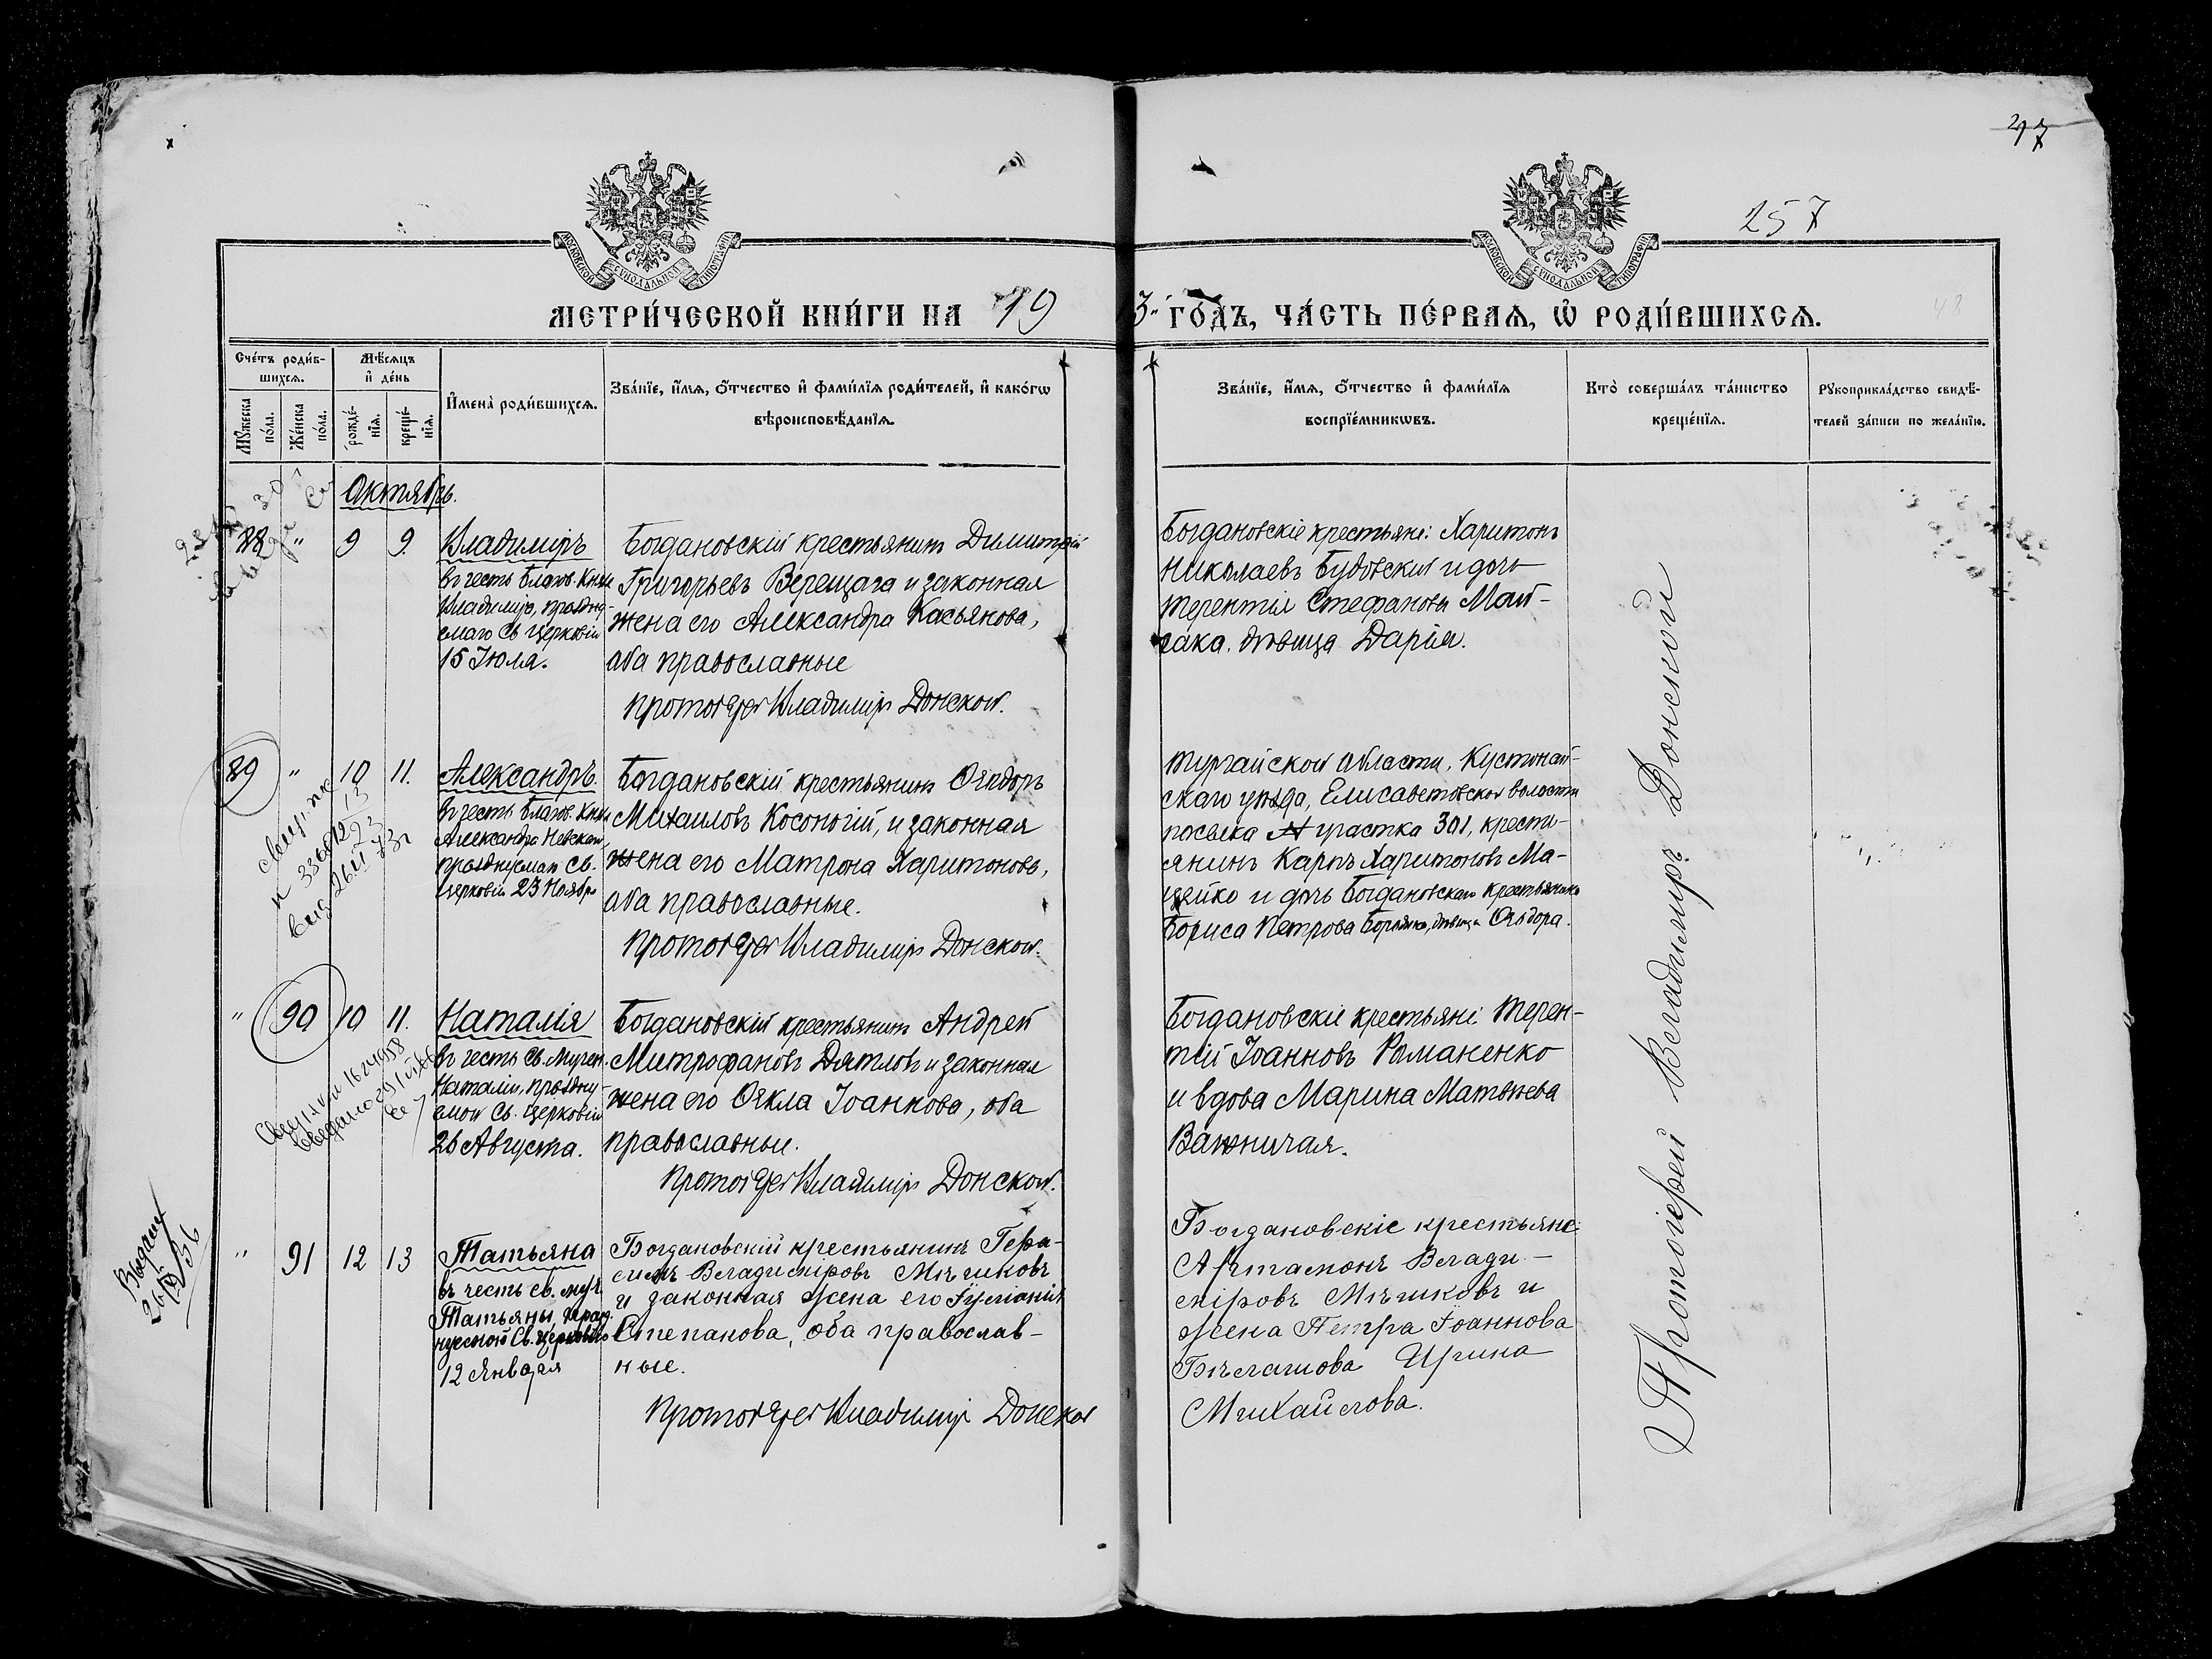 47
257
МОСКОВСКОЙ СѴНОДАЛЬНОЙ ТИПОГРАФІИ
МОСКОВСКОЙ СѴНОДАЛЬНОЙ ТИПОГРАФІИ
МЕТРИ́ЧЕСКОЙ КНИ́ГИ НА 19 3. ГО́ДЪ, ЧА́СТЬ ПЕ́РВАѦ, Ѡ҆ РОДИ́ВШИХСѦ.
Сче́тъ роди́в-
шихсѧ.
Мѣ́сѧцъ
и҆ де́нь
Мꙋ́жеска
по́ла.
Же́нска
по́ла.
рожде́-
нїѧ.
креще́-
нїѧ.
И҆мена̀ роди́вшихсѧ.
Зва́нїе, и҆́мѧ, ѻ҆́тчество и҆ фами́лїѧ роди́телей, и҆ како́гѡ
вѣроисповѣ́данїѧ.
Зва́нїе, и҆́мѧ, ѻ҆́тчество и҆ фами́лїѧ
воспрїе́мникѡвъ.
Кто̀ соверша́лъ та́инство
креще́нїѧ.
Рꙋкоприкла́дство свидѣ́-
телей за́писи по жела́нїю.
Октябрь.
88 " 9 9. Владиміръ
въ честь Благов. Князя
Владиміра, праздну-
емаго Св. Церковію
15 Іюля.
Богдановскій крестьянинъ Димитрій
Григорьевъ Верещага и законная
жена его Александра Касьянова,
оба православные
Протоіерей Владиміръ Донской.
Богдановскіе крестьяне: Харитонъ
Николаевъ Будовскій и дочь
Терентія Стефанова Май-
дѣвица Дарія.
89 " 10 11. Александръ.
въ честь Благов. Князя
Александра Невскаго,
празднуемаго Св.
Церковію 23 Ноября
Богдановскій крестьянинъ Ѳеодоръ
Михаиловъ Косоногій, и законная
жена его Матрона Харитонова,
оба православные.
Протоіерей Владиміръ Донской.
Тургайской области, Кустонай-
скаго уѣзда, Елисаветовской волости
поселка участка 301, кресть-
янинъ Карпъ Харитоновъ Ма-
цейко и дочь Богдановскаго крестьянина
Бориса Петрова дѣвица Ѳеодора.
" 90 10 11. Наталія
въ честь Св. Мучен.
Наталіи, праздну-
емой Св. Церковію
26 Августа.
Богдановскій крестьянинъ Андрей
Митрофановъ Дятловъ и законная
жена его Ѳекла Іоаннова, оба
православные.
Протоіерей Владиміръ Донской.
Богдановскіе крестьяне: Терен-
тій Іоанновъ Романенко
и вдова Марина Матвѣева
Важничая.
" 91 12 13 Татьяна
въ честь св. муч.
Татьяны, празд-
нуемой Св. Церковію
12 Января
Богдановскій крестьянинъ Гера-
симъ Владиміровъ Мѣшковъ
и законная жена его Іуліанія
Степанова, оба православ-
ные.
Протоіерей Владиміръ Донской
Богдановскіе крестьяне:
Артамонъ Влади-
міровъ Мѣшковъ и
жена Петра Іоаннова
Бѣлашова Ирина
Михайлова.
Протоіерей Владиміръ Донской